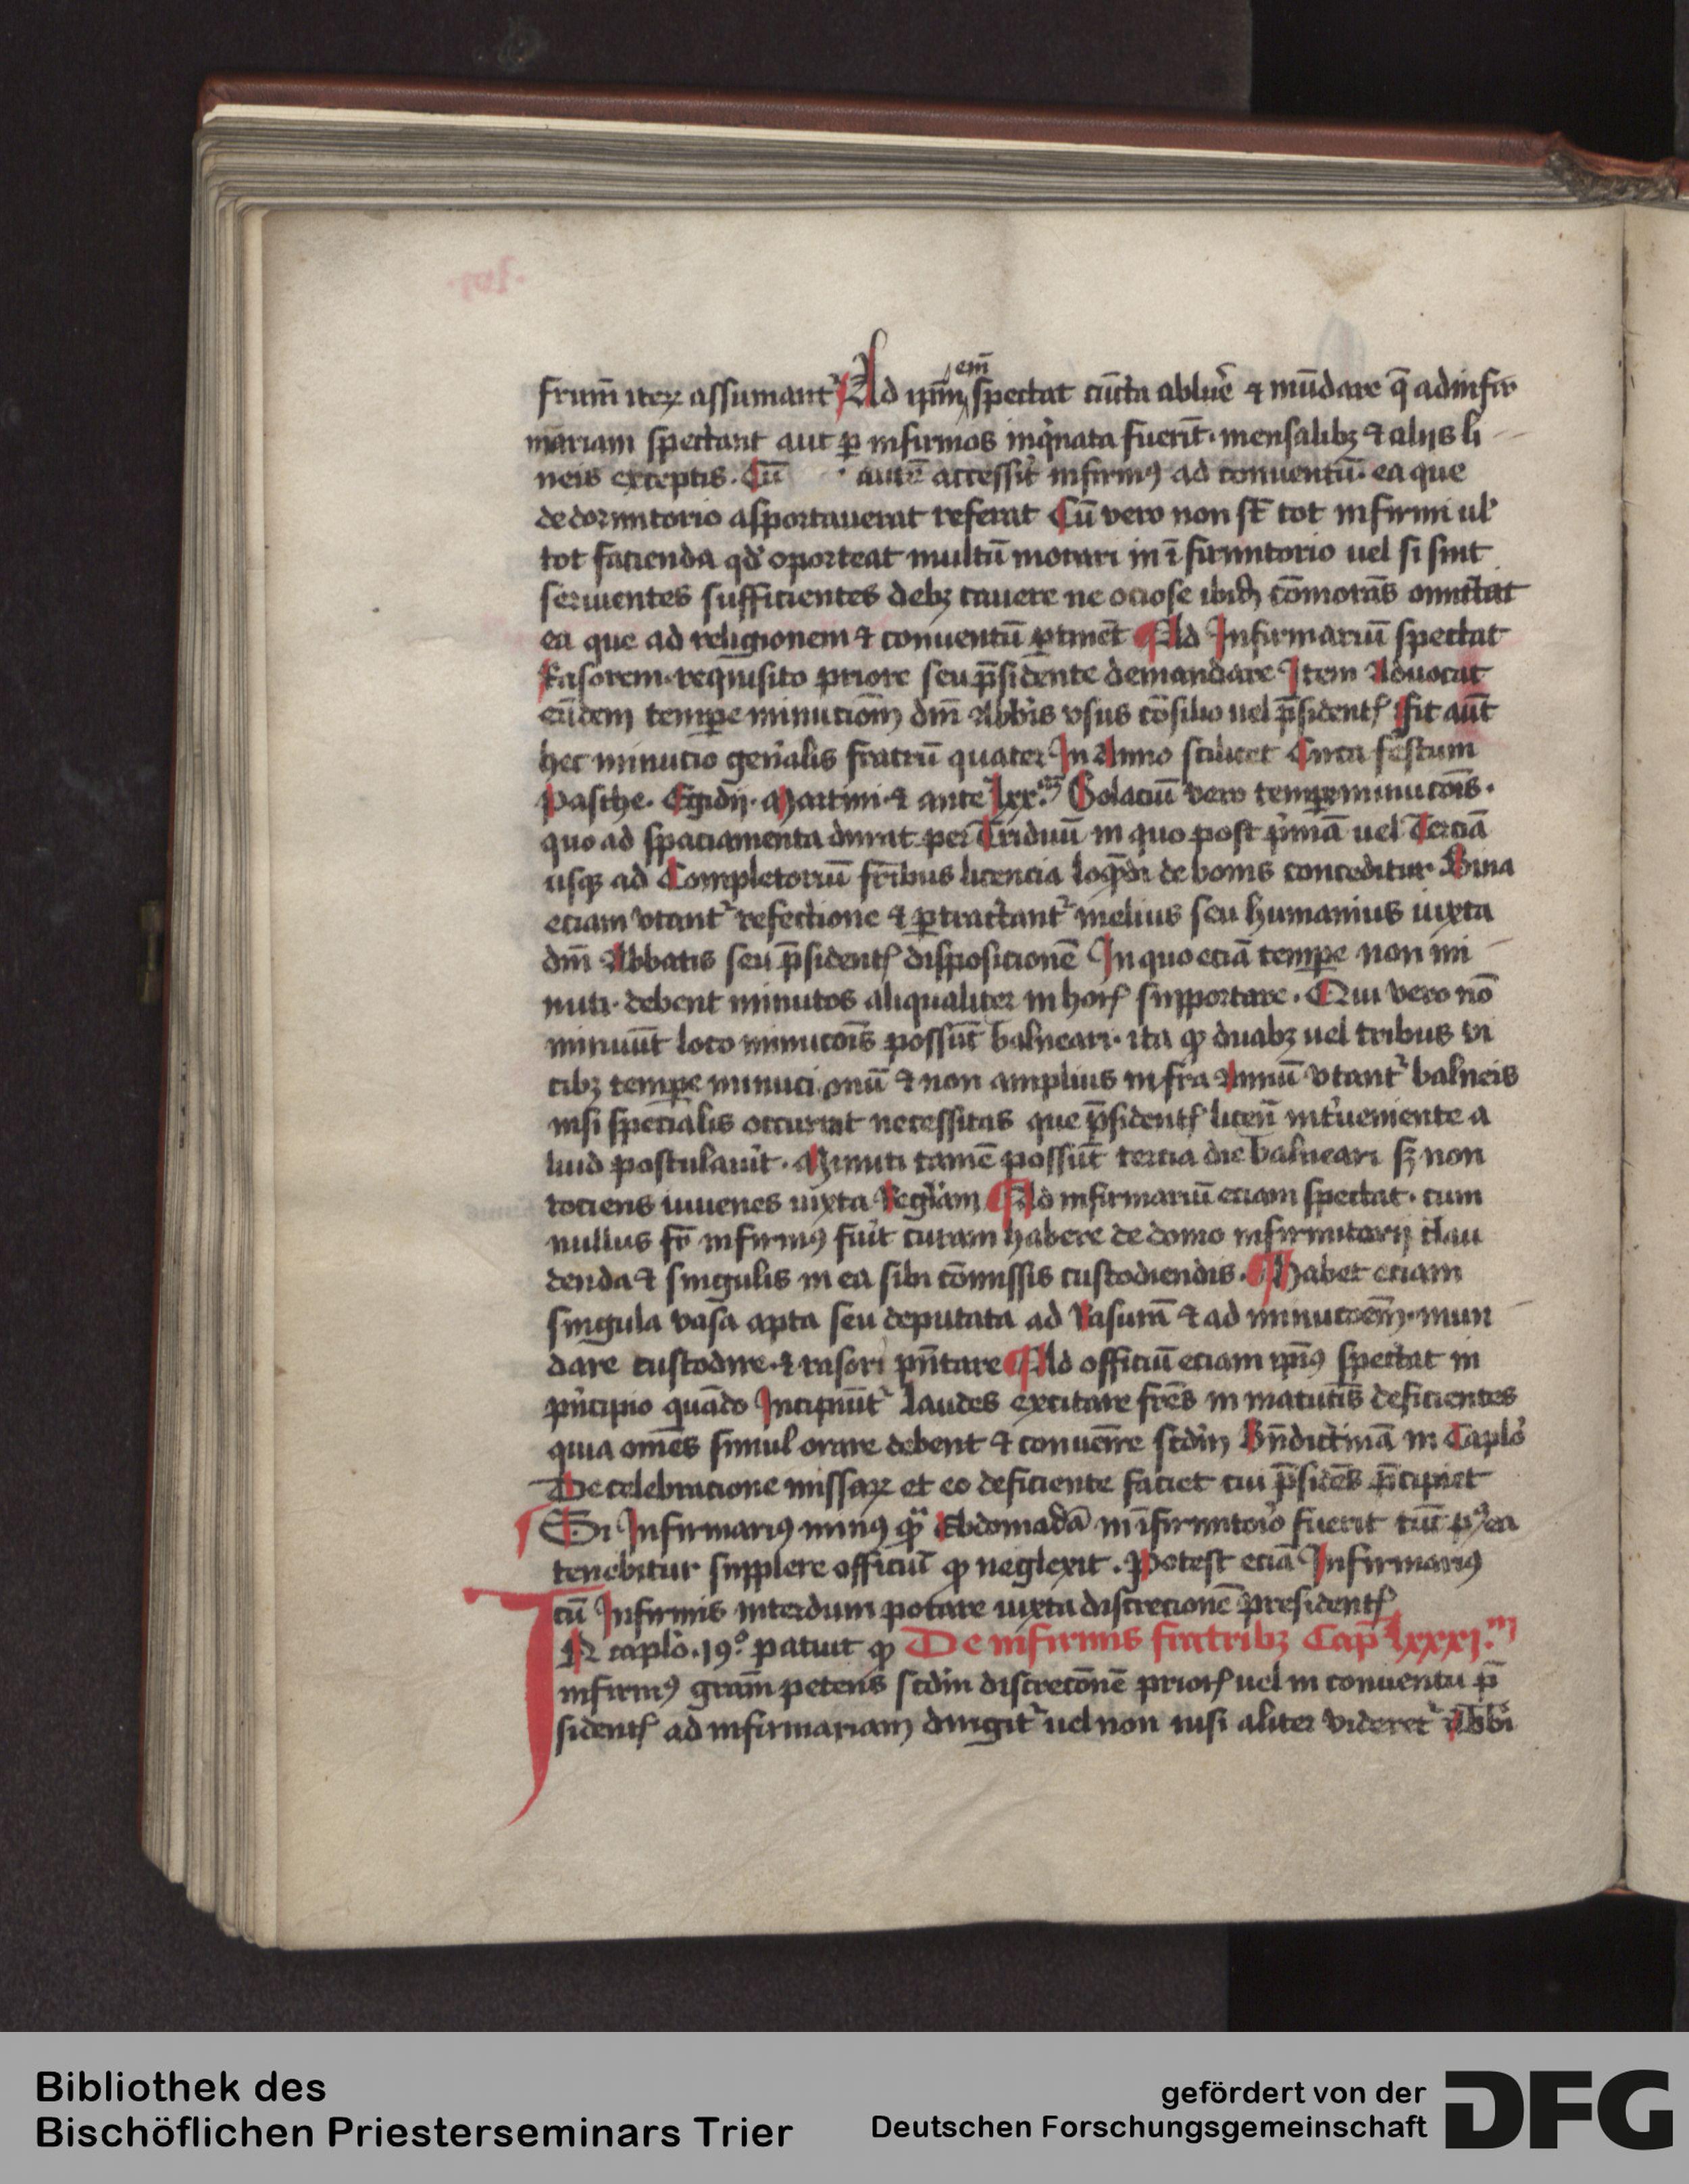 frum̄ iteꝝ assumant᷑ Ad ipm̄ em̄ spectat cūcta abluē ⁊ mūdare q̄ ad infir
mariam spectant aut ꝑ infirmos inq̇nata fuerīt · mensalibꝫ ⁊ alijs li
neis exceptis . Cū autē accessit infirmꝰ ad conuentū ea que
de dormitorio asportauerat referat Cū vero non st̄ tot infirmi ul᷑
tot facienda qd᷑ oporteat multū morari in īfirmitorio uel si sint
seruientes sufficientes debꝫ cauere ne ociose ibid̄ cōmorās omittat
ea que ad religionem ⁊ conuentū ꝑtinēt Ad Infirmariū spectat
Rasorem requisito priore seu p̄sidente demandare Item Aduocat
eūdem tempe minucionū dn̄i Abb̄is vsus cōsilio uel p̄sidentꝭ Fit aūt
hec minucio gen̄alis fratrū quater In Anno scilicet Circa festum
Pasche . Egidij . Martini ⁊ ante lxx.ᵃᵐ Solaciū vero tempe minucōis .
quo ad spaciamenta durat per Triduū in quo post p̓mā uel Terciā
usqꝫ ad Completoriū fr̄ibus licencia loq̄ndi de bonis conceditur . Bina
eciam vtant᷑ refectione ⁊ ꝑtractant᷑ melius seu humanius iuxta
dn̄i Abbatis seu p̄sidentꝭ disposicionē In quo eciā tempe non mi
nuti · debent minutos aliqualiter in horꝭ supportare . Qui vero nō
minuūt loco minucōis possūt balneari · ita ꝙ duabꝫ uel tribus vi
cibꝫ tempe minucionū ⁊ non amplius infra Annū vtant᷑ balneis
nisi specialis occurrat necessitas que p̄sidentꝭ licen̄ int᷑ueniente a
liud postulauit . Minuti tamē possūt tercia die balneari sꝫ non
tociens iuuenes iuxta Regl᷑am Ad infirmariū eciam spectat · cum
nullus fr̄ infirmꝰ fuit curam habere de domo infirmitorij clau
denda ⁊ singulis in ea sibi cōmissis custodiendis . Habet eciam
singula vasa apta seu deputata ad Rasurā ⁊ ad minucōem · mun
dare custodire · ⁊ rasori pn̄tare Ad officiū eciam ipīꝰ spectat in
p̓ncipio quādo Incipiūt᷑ Laudes excitare frēs in matutīs deficientes
quia omēs simul orare debent ⁊ conuenire scd̄m Bn̄dictinā in Caplō
De celebracione missaꝝ et eo deficiente faciet cui p̄sidēs p̄cipiet
Si Infirmariꝰ minꝰ qᷓ Ebdomadā in īfirmitorō fuerit tūc pꝰea
tenebitur supplere officiū ꝙ neglexit . Potest eciā Infirmariꝰ
cū Infirmis interdum potare iuxta discrecionē presidentꝭ
In caplō . 19º patuit ꝙ De infirmis fratribꝫ Cap̄ lxxxj.ᵐ
infirmꝰ grām petens scd̄m discrecōnē priorꝭ uel in conuentu p̄
sidentꝭ ad infirmariam dirigit᷑ uel non nisi aliter videret᷑ Abb̄i
Bibliothek des
Bischöflichen Priesterseminars Trier
gefördert von der
Deutschen Forschungsgemeinschaft
DFG